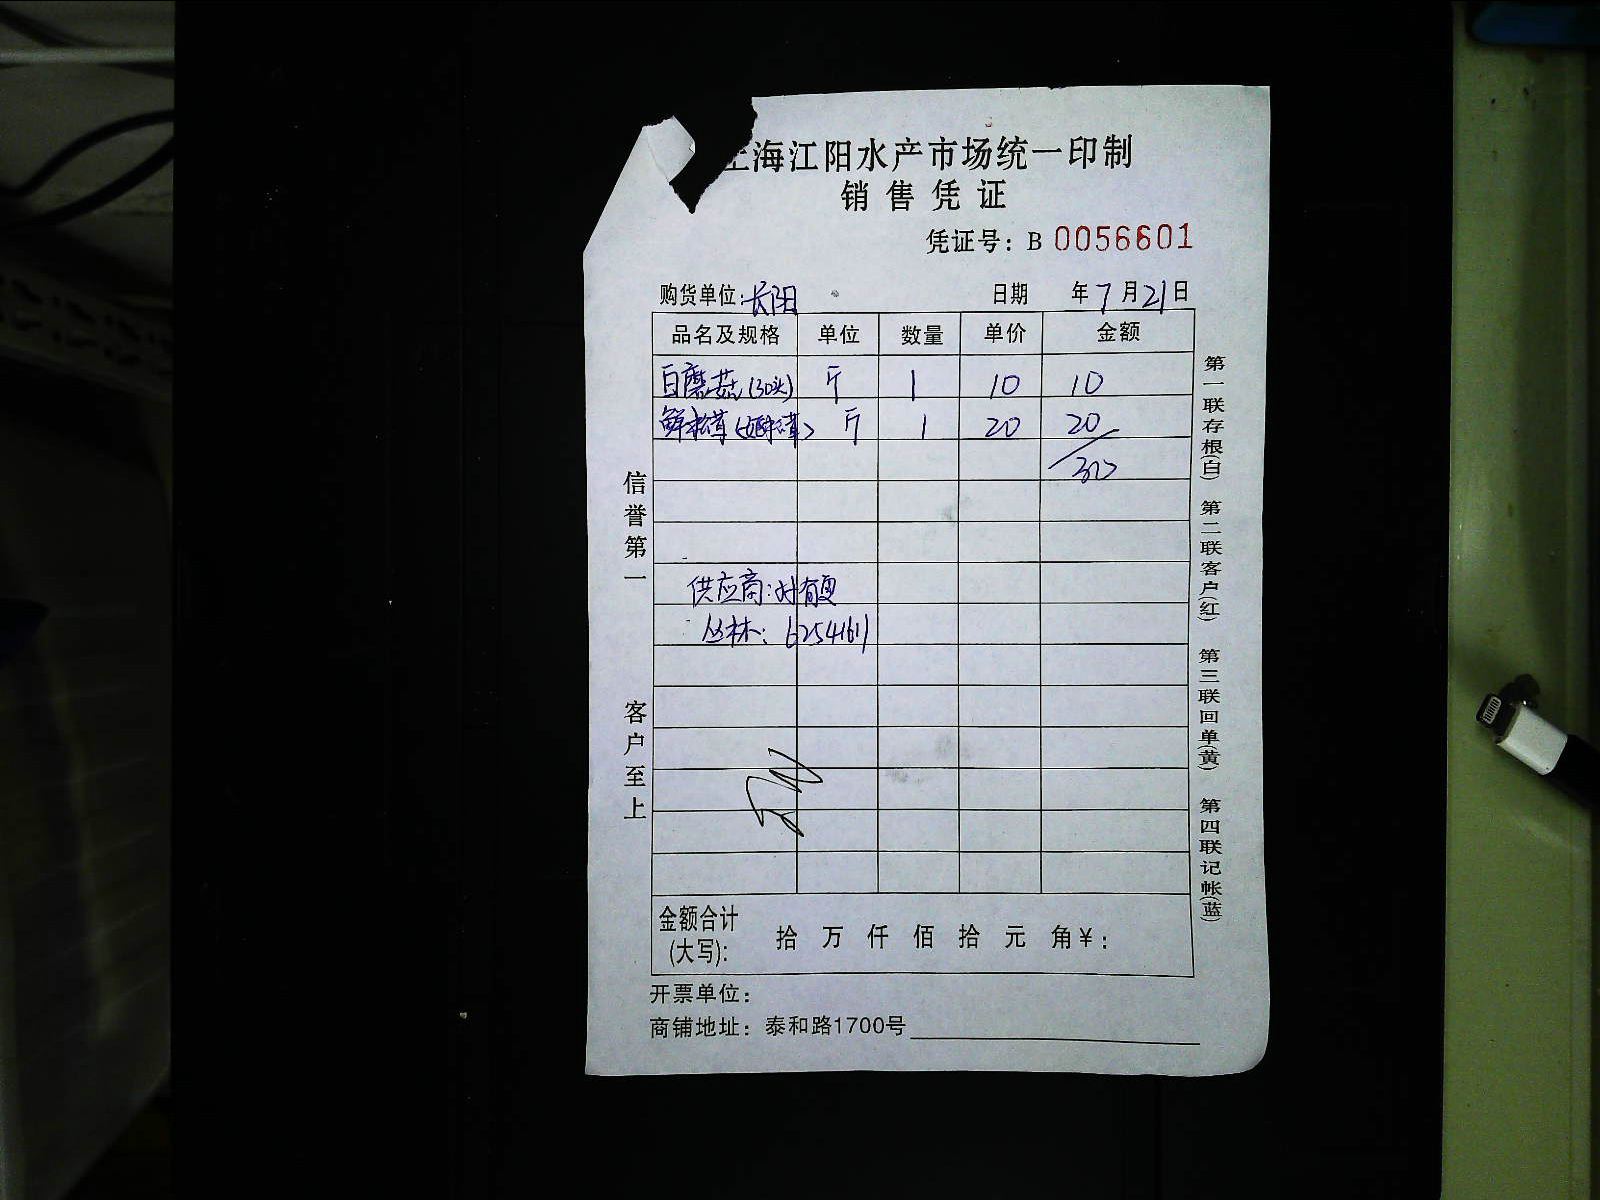 上海江阳水产市场统一印制
销售凭证
凭证号：B 0056601
购货单位：长阳 日期 年7月21日
品名及规格 单位 数量 单价 金额
白磨菇(30头) 斤 1 10 10
鲜松茸 斤 1 20 20
30
供应商：
丛林：62541611
信誉第一
客户至上
第一联存根(白) 第二联客户(红) 第三联回单(黄) 第四联记帐(蓝)
金额合计
(大写): 拾 万 仟 佰 拾 元 角¥：
开票单位：
商铺地址：泰和路1700号